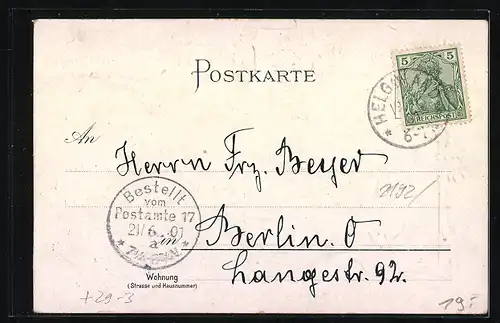 POSTKARTE
5 5
REICHSPOST
HELGO
6-7
An
Herrn Frz. Beyer
2192/
Bestellt
vom
Postamte 17
21/6. 01
in
Berlin. O
Wohnung
(Strasse und Hausnummer)
Langestr. 92.
+29-3
19.-